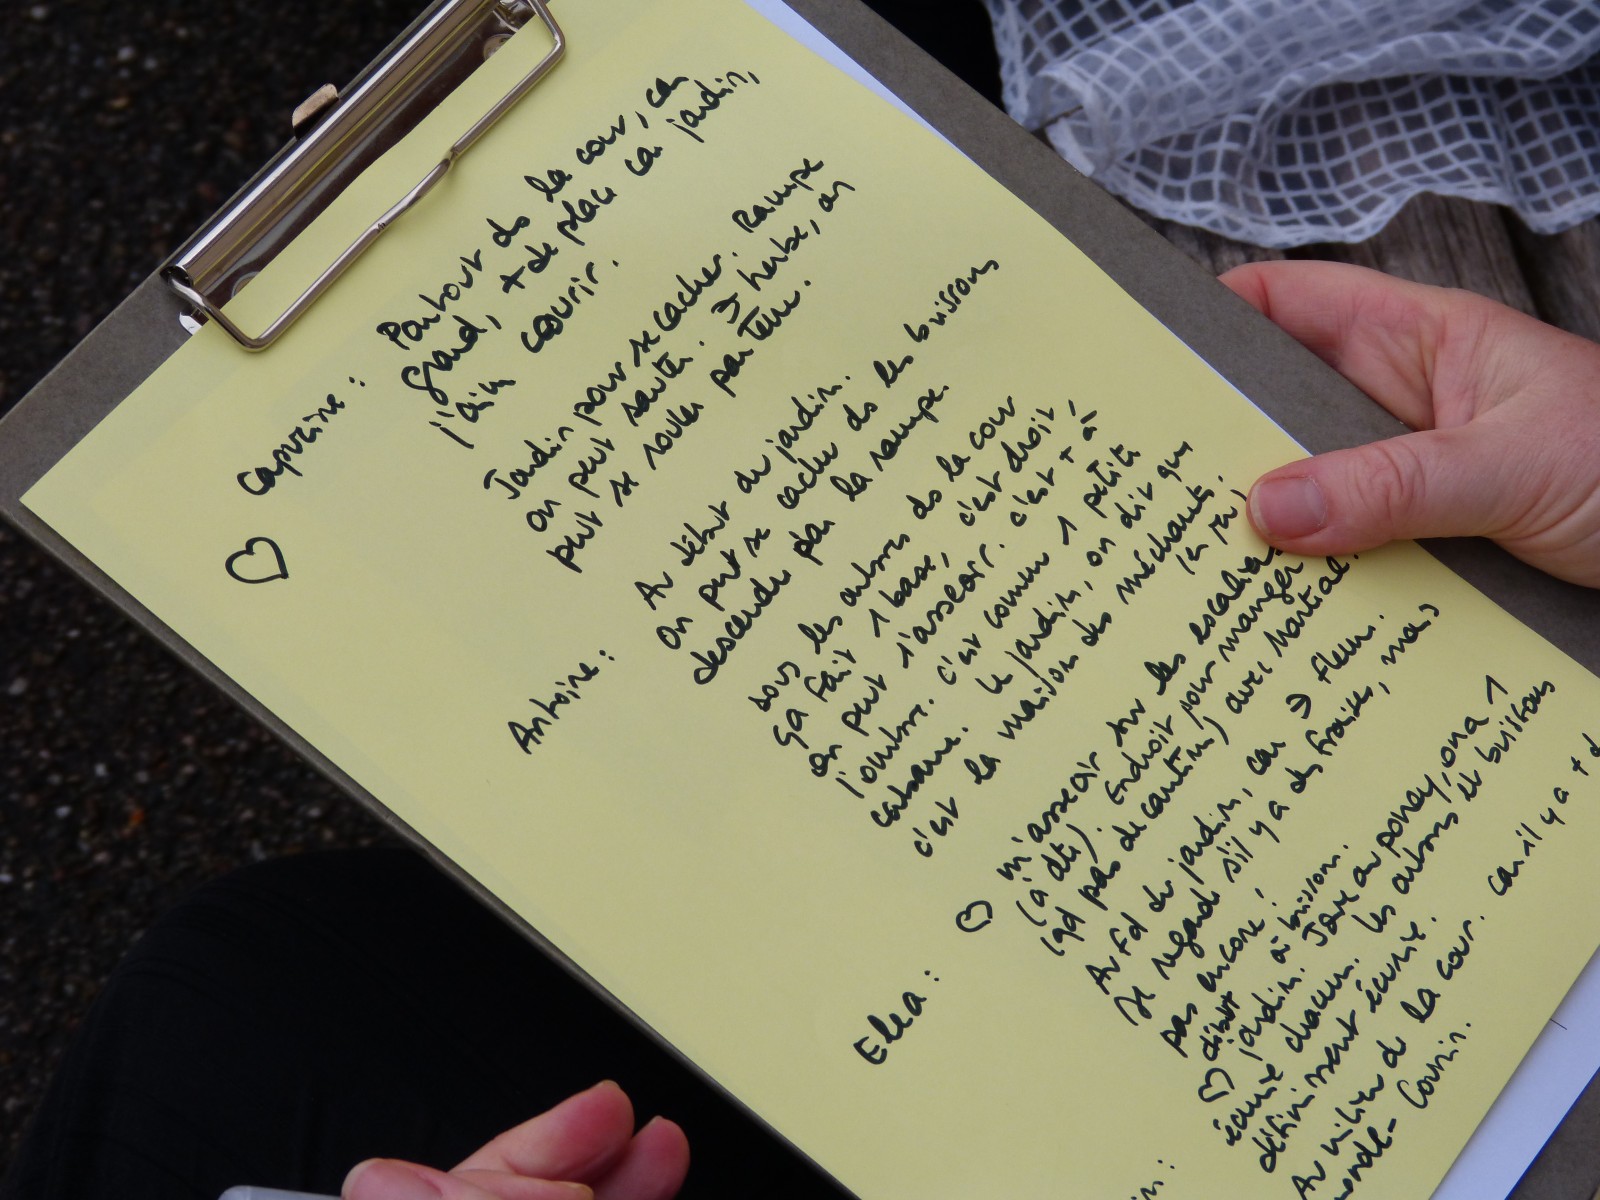 Capucine : Partout ds la cour, car
grand, + de place car jardin,
j'aim courir.
Jardin pour se cacher. Rampe
on peut sauter. ∋ herbe, on
peut se rouler par terre.
Antoine : Au début du jardin.
On peut se cacher ds les buissons
descendre par la rampe.
sous les arbres ds la cour
ça fait 1 base, c'est droit,
on peut s'asseoir. c'est + à
l'ombre. c'est comme 1 petite
cabane. Le jardin, on dit que
c'est la maison des méchants.
Elea : m'asseoir sur les escaliers
(à dte). Endroit pour manger
(qd pas de cantine) avec Martial.
Au fd du jardin, car ∋ fleurs.
Je regarde s'il y a des fraises, mais
pas encore !
début à buisson.
jardin. Joue au poney, on a 1
écurie chacun. Les arbres et buissons
définissent écurie.
Au milieu de la cour. car il y a + d
monde - Cousin.